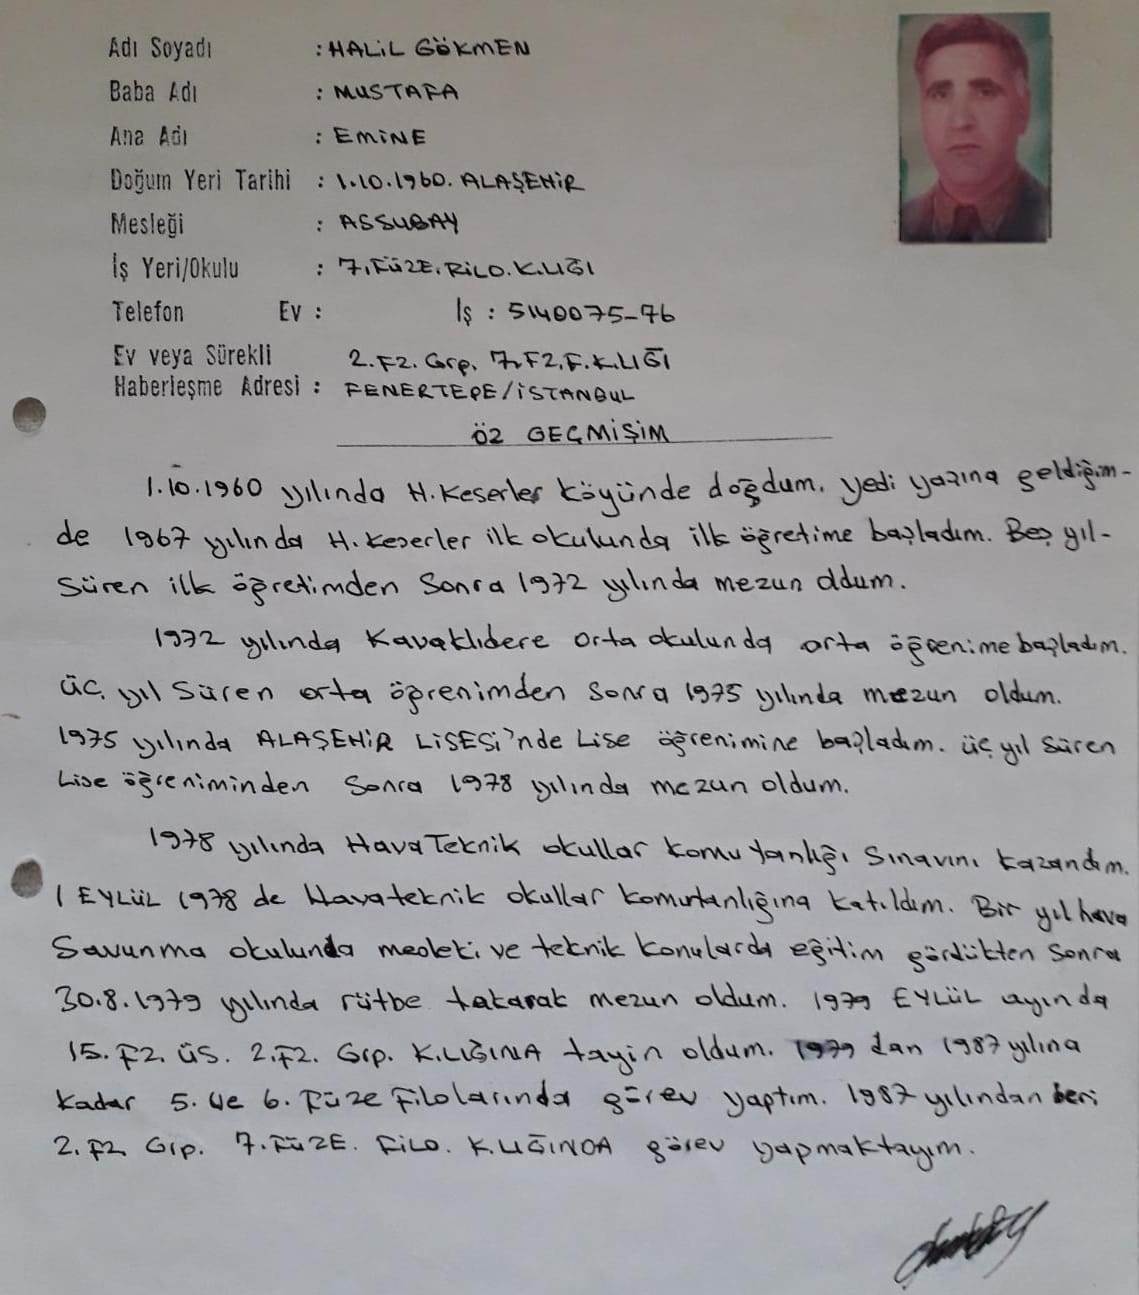 Adı Soyadı : HALİL GÖKMEN
Baba Adı : MUSTAFA
Ana Adı : EMİNE
Doğum Yeri Tarihi : 1.10.1960. ALAŞEHİR
Mesleği : ASSUBAY
İş Yeri/Okulu : 7.FÜZE.FİLO.K.LIĞI
Telefon Ev : İş : 5140075-76
Ev veya Sürekli 2.FZ. Grp. 7.FZ.F.K.LIĞI
Haberleşme Adresi : FENERTEPE/İSTANBUL
ÖZ GEÇMİŞİM
1.10.1960 yılında H.Keserler köyünde doğdum. yedi yaşına geldiğim-
de 1967 yılında H.Keserler ilk okulunda ilk öğretime başladım. Beş yıl-
süren ilk öğretimden sonra 1972 yılında mezun oldum.
1972 yılında Kavaklıdere orta okulunda orta öğrenime başladım.
üç yıl süren orta öğrenimden sonra 1975 yılında mezun oldum.
1975 yılında ALAŞEHİR LİSESİ'nde Lise öğrenimine başladım. üç yıl süren
Lise öğreniminden sonra 1978 yılında mezun oldum.
1978 yılında Hava Teknik okullar komutanlığı sınavını kazandım.
1 EYLÜL 1978 de Hava teknik okullar komutanlığına katıldım. Bir yıl hava
Savunma okulunda mesleki ve teknik konularda eğitim gördükten sonra
30.8.1979 yılında rütbe takarak mezun oldum. 1979 EYLÜL ayında
15. FZ. ÜS. 2.FZ. Grp. K.LIĞINA tayin oldum. 1979 dan 1987 yılına
kadar 5. ve 6. Füze Filolarında görev yaptım. 1987 yılından beri
2. FZ Grp. 7.FÜZE. FİLO. K.LIĞINDA görev yapmaktayım.